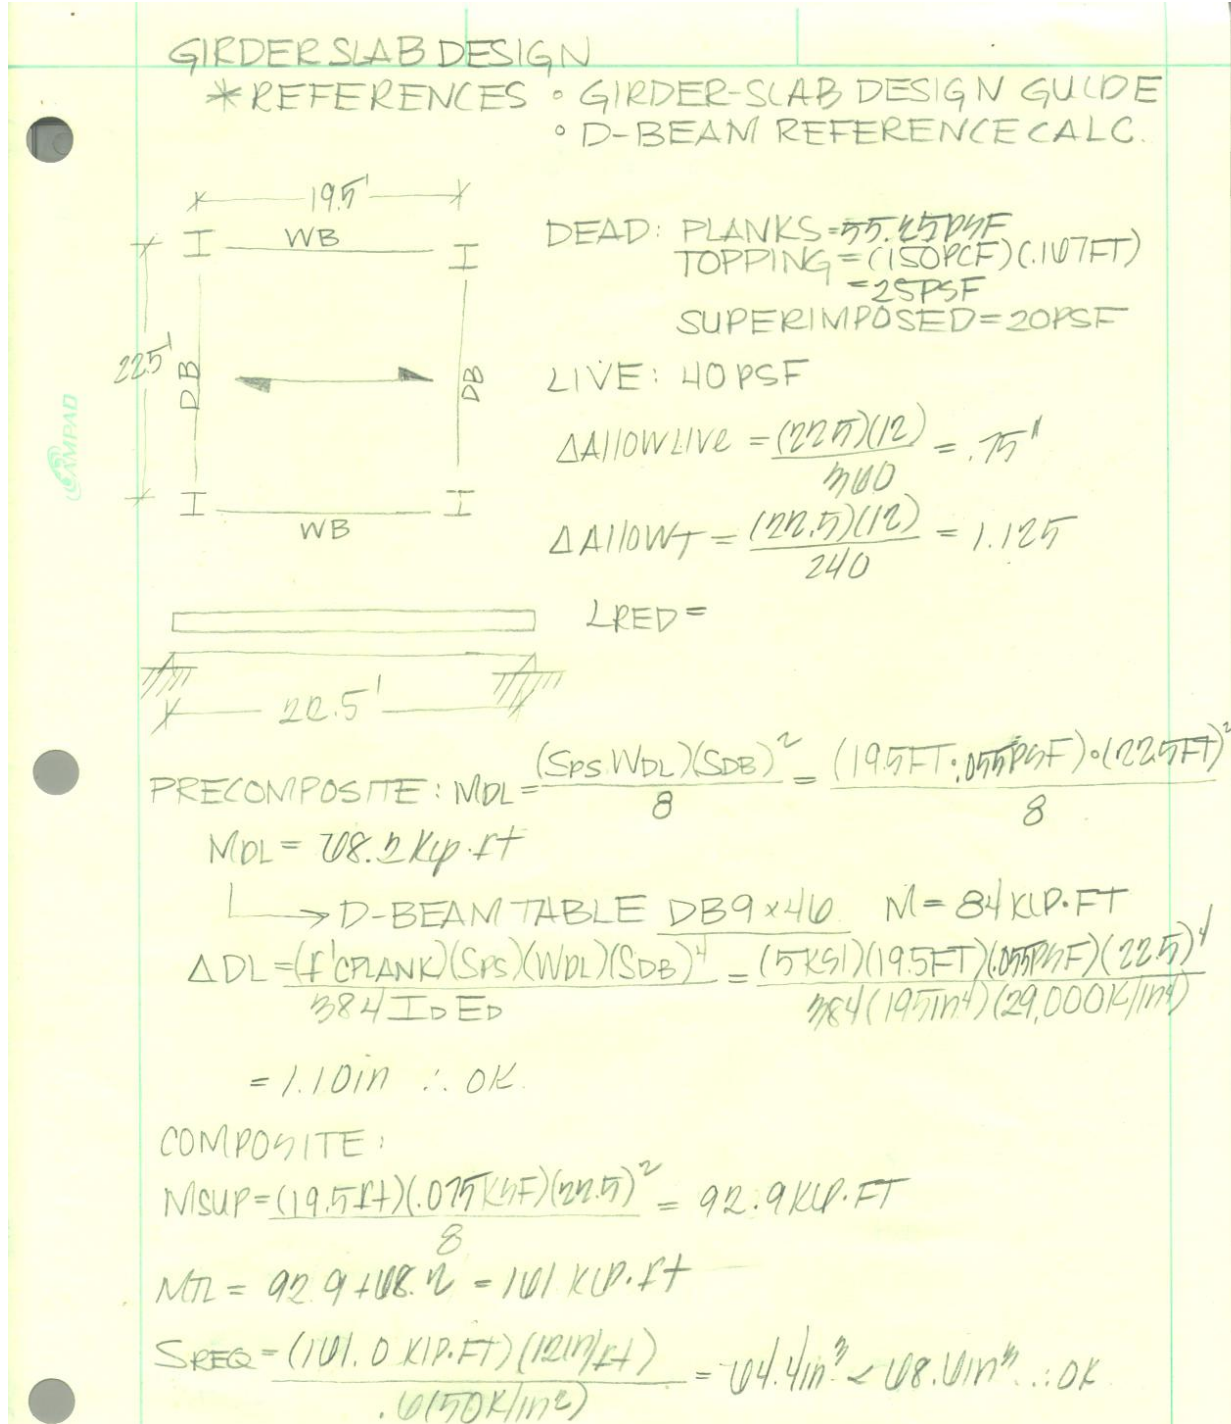 GIRDER SLAB DESIGN
* REFERENCES ∘ GIRDER-SLAB DESIGN GUIDE
∘ D-BEAM REFERENCE CALC.
19.5'
WB
DEAD: PLANKS = 55.25PSF
TOPPING = (150PCF)(.167FT)
= 25PSF
SUPERIMPOSED = 20PSF
22.5'
DB
DB
LIVE: 40 PSF
CAMPAD
ΔAllOWLIVE = (22.5)(12) / 360 = .75"
WB
ΔAllOWT = (22.5)(12) / 240 = 1.125
LRED =
22.5'
PRECOMPOSITE: MDL = (SPS WDL)(SDB)² / 8 = (19.5FT · .055PSF)·(22.5FT)² / 8
MDL = 68.2 Kip·ft
→ D-BEAM TABLE DB9x46 M = 84 KIP·FT
ΔDL = (f'CPLANK)(SPS)(WDL)(SDB)⁴ / 384 ID ED = (5KSI)(19.5FT)(.055PSF)(22.5)⁴ / 384(195in⁴)(29,000K/in⁴)
= 1.10in ∴ OK.
COMPOSITE:
MSUP = (19.5ft)(.075KSF)(22.5)² / 8 = 92.9 KIP·FT
MTL = 92.9 + 68.2 = 161 KIP·ft
SREQ = (161.0 KIP·FT)(12in/ft) / .6(50K/in²) = 64.4in³ < 68.6in³ ∴ OK